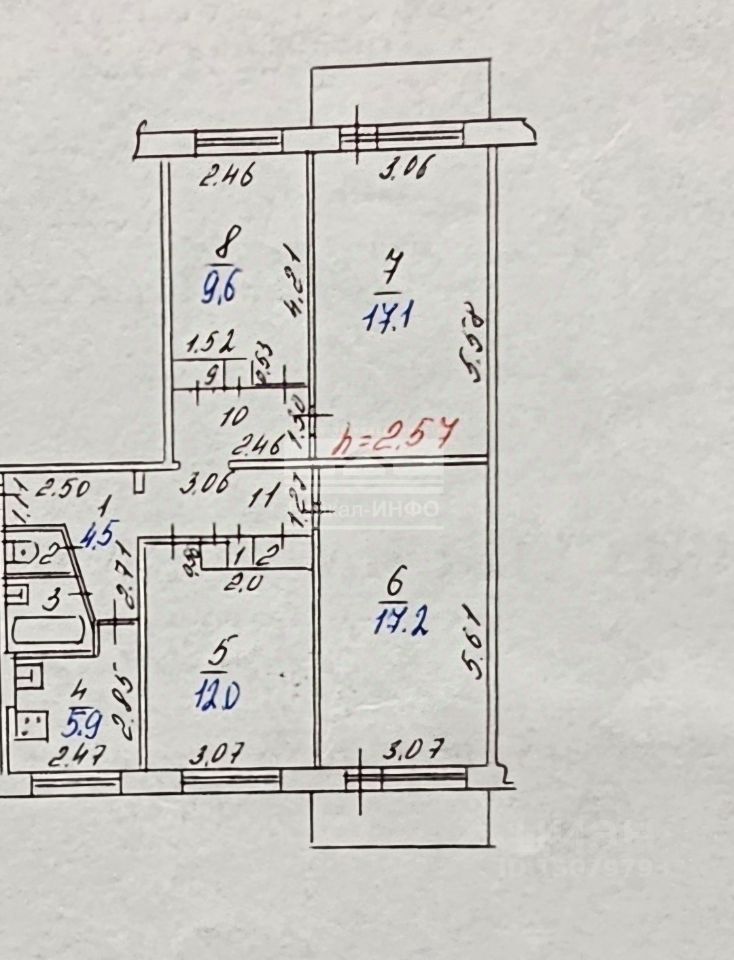 2.46
3.06
8
9.6
4.21
7
17.1
5.58
1.52
9
0.53
10
1.30
2.46
h=2.57
2.50
1.11
1
4.5
3.06
11
1.23
кал-ИНФО
2
2.71
1
2
2.0
3
6
17.2
5.61
5
12.0
4
5.9
2.85
2.47
3.07
3.07